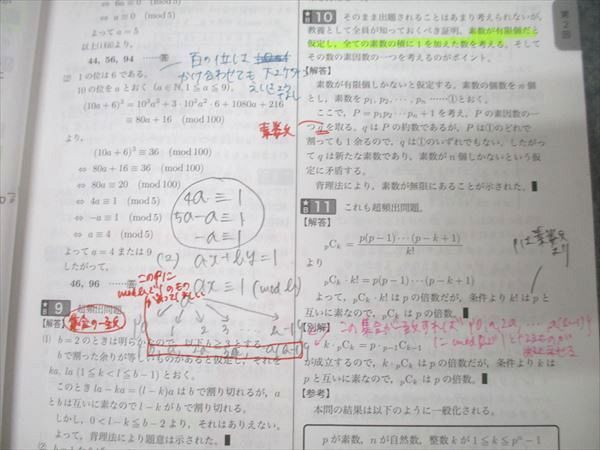 ⇔ 6a ≡ 0 (mod 5)
⇔ a ≡ 0 (mod 5)
よって a = 5
以上(i)(ii)より,
44, 56, 94 ……答
百の位は
かけ合わせても
(2) 1の位は6である.
10の位をaとおく (a∈N, 1≦a≦9).
(10a+6)³ = 10³a³ + 3·10²a²·6 + 1080a + 216
≡ 80a + 16 (mod 100)
より,
(10a+6)³ ≡ 36 (mod 100)
⇔ 80a + 16 ≡ 36 (mod 100)
⇔ 80a ≡ 20 (mod 100)
⇔ 4a ≡ 1 (mod 5)
⇔ −a ≡ 1 (mod 5)
⇔ a ≡ 4 (mod 5)
よって a = 4 または 9
したがって,
46, 96 ……答
4a ≡ 1
5a−a ≡ 1
−a ≡ 1
(2) ax+by=1
ax ≡ 1 (mod b)
★B 9 超頻出問題.
【解答】
集合の一致
(1) b=2のときは明らかなので, 以下 b≧3とする.
bで割った余りが等しいものがあると仮定し, それを
ka, la (1≦k<l≦b−1) とおく.
このとき la−ka=(l−k)a はbで割り切れるが, a
とbは互いに素なので l−k がbで割り切れる.
しかし, 0<l−k≦b−2 より, それはありえない.
よって, 背理法により題意は示された.
第2回
★B 10 そのまま出題されることはあまり考えられないが,
教養として全員が知っておくべき証明. 素数が有限個だと
仮定し, 全ての素数の積に1を加えた数を考える. そして
その数の素因数の一つを考えるのがポイント.
【解答】
素数が有限個しかないと仮定する. 素数の個数をn個
とし, 素数を p₁, p₂, ···, pₙ ……①とおく.
ここで, P=p₁p₂···pₙ+1 を考え, Pの素因数の一
つqを取る. qはPの約数であるが, Pは①のどれで
割っても1余るので, qは①のいずれでもない. したがっ
てqは新たな素数であり, 素数がn個しかないという仮
定に矛盾する.
背理法により, 素数が無限にあることが示された.
★B 11 これも超頻出問題.
【解答】
ₚCₖ = p(p−1)···(p−k+1) / k!
より
ₚCₖ·k! = p(p−1)···(p−k+1)
よって, ₚCₖ·k! はpの倍数だが, 条件より k! はpと
互いに素なので, ₚCₖ はpの倍数である.
【別解】
k·ₚCₖ = p·ₚ₋₁Cₖ₋₁
が成立するので, k·ₚCₖ はpの倍数だが, 条件よりkは
pと互いに素なので, ₚCₖ はpの倍数.
【参考】
本問の結果は以下のように一般化される.
pが素数, nが自然数, 整数kが 1≦k≦pⁿ−1